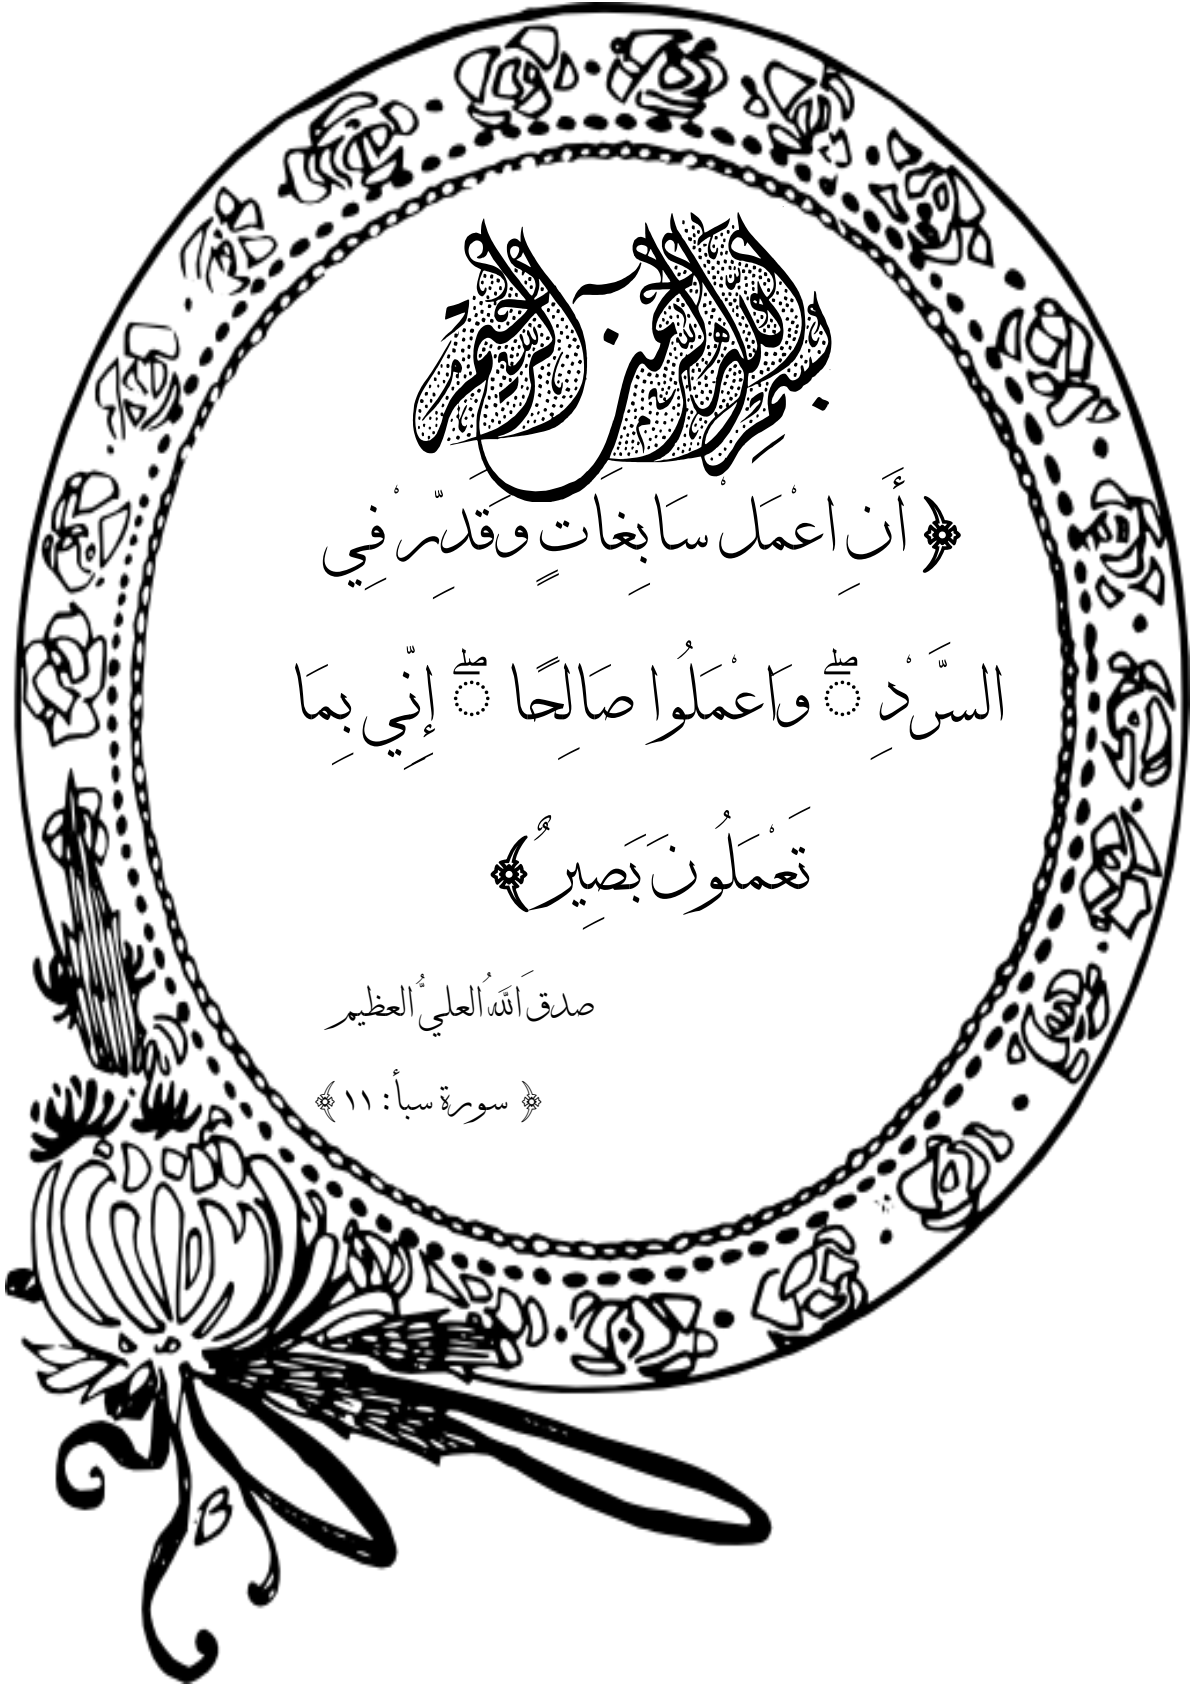 بسم الله الرحمن الرحيم
﴿ أَنِ اعْمَلْ سَابِغَاتٍ وَقَدِّرْ فِي
السَّرْدِ ۖ وَاعْمَلُوا صَالِحًا ۖ إِنِّي بِمَا
تَعْمَلُونَ بَصِيرٌ ﴾
صدقَ اللهُ العليُّ العظيم
﴿ سورة سبأ: ١١ ﴾